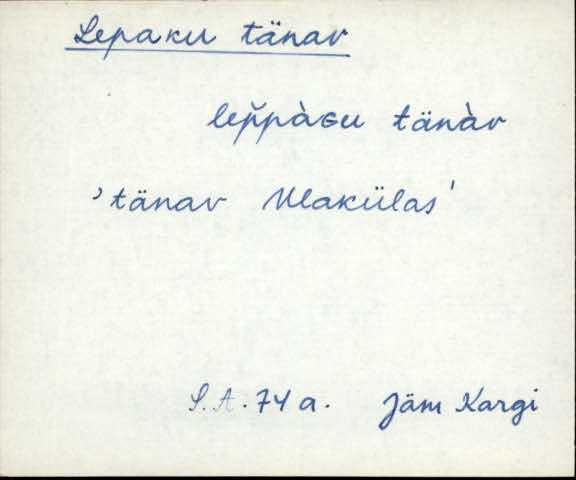 Lepaku tänav
lep̆pàɢu tänàv
'tänav Ulakülas'
S.A. 74 a. Jäm Kargi